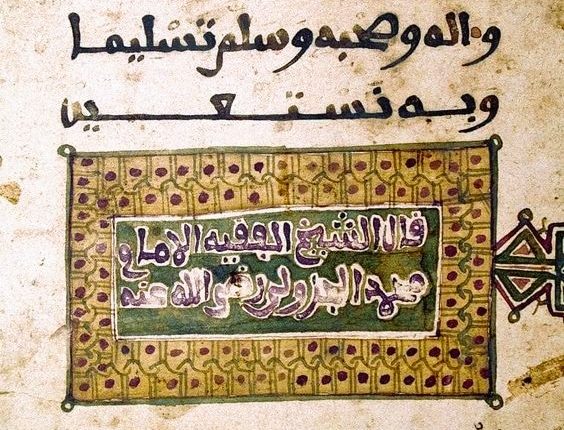 وءاله وصحبه وسلم تسليما
وبه نستعين
قال الشيخ الفقيه الامام
محمد الجزولي رضي الله عنه